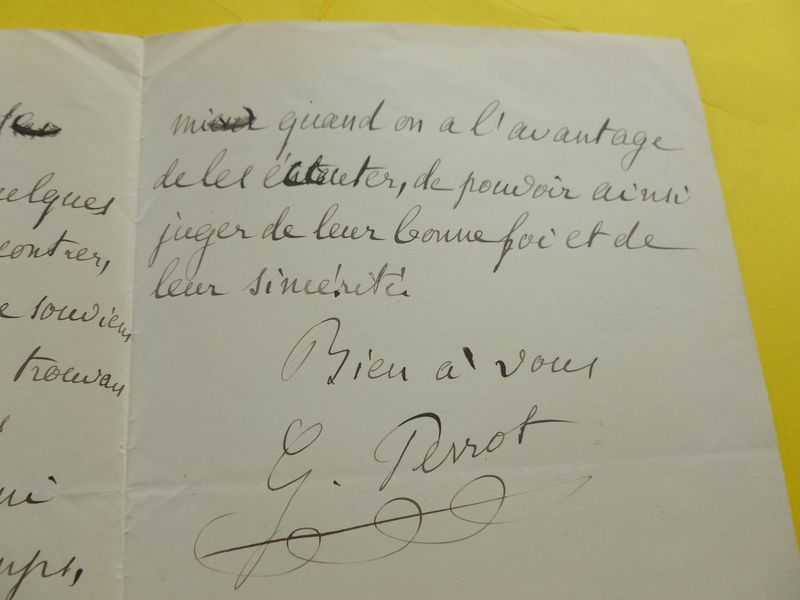 uelques
contrer,
e souviens
trouvan
ui
mps,
mieux quand on a l'avantage
de les écouter, de pouvoir ainsi
juger de leur bonne foi et de
leur sincérité.
Bien à vous
G. Perrot